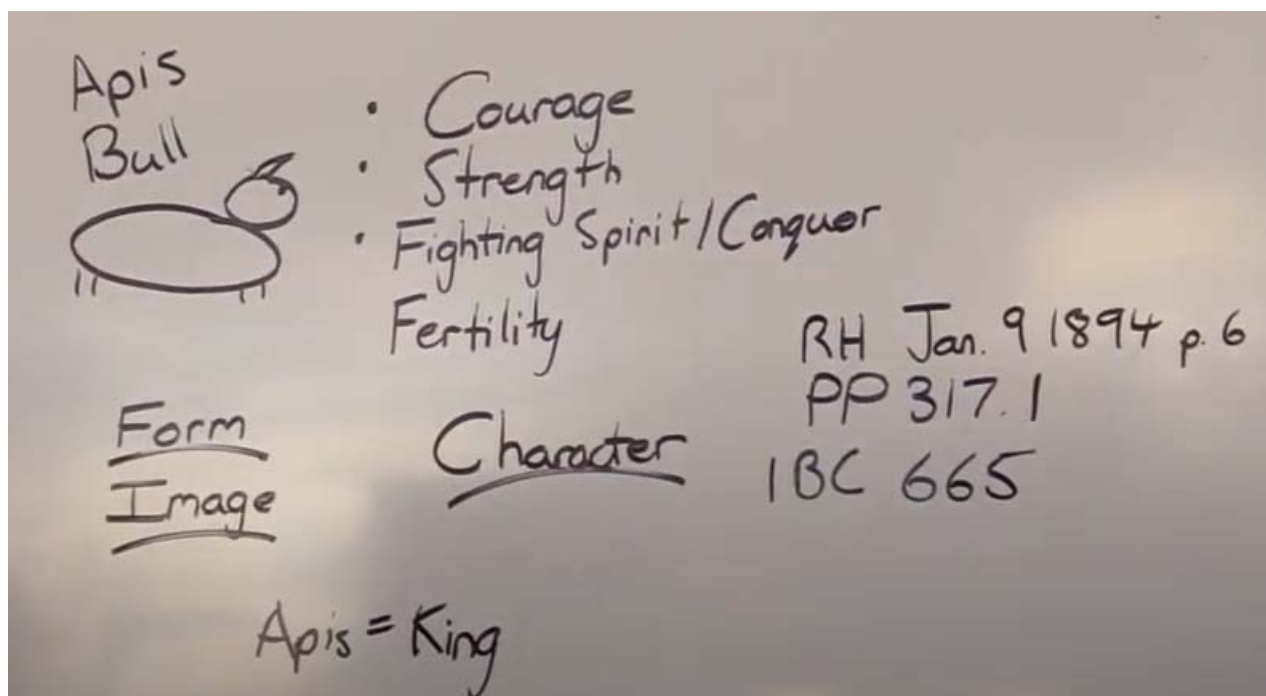 Apis
Bull
· Courage
· Strength
· Fighting Spirit/Conquer
Fertility
RH Jan. 9 1894 p. 6
PP 317.1
1BC 665
Form
Image
Character
Apis = King